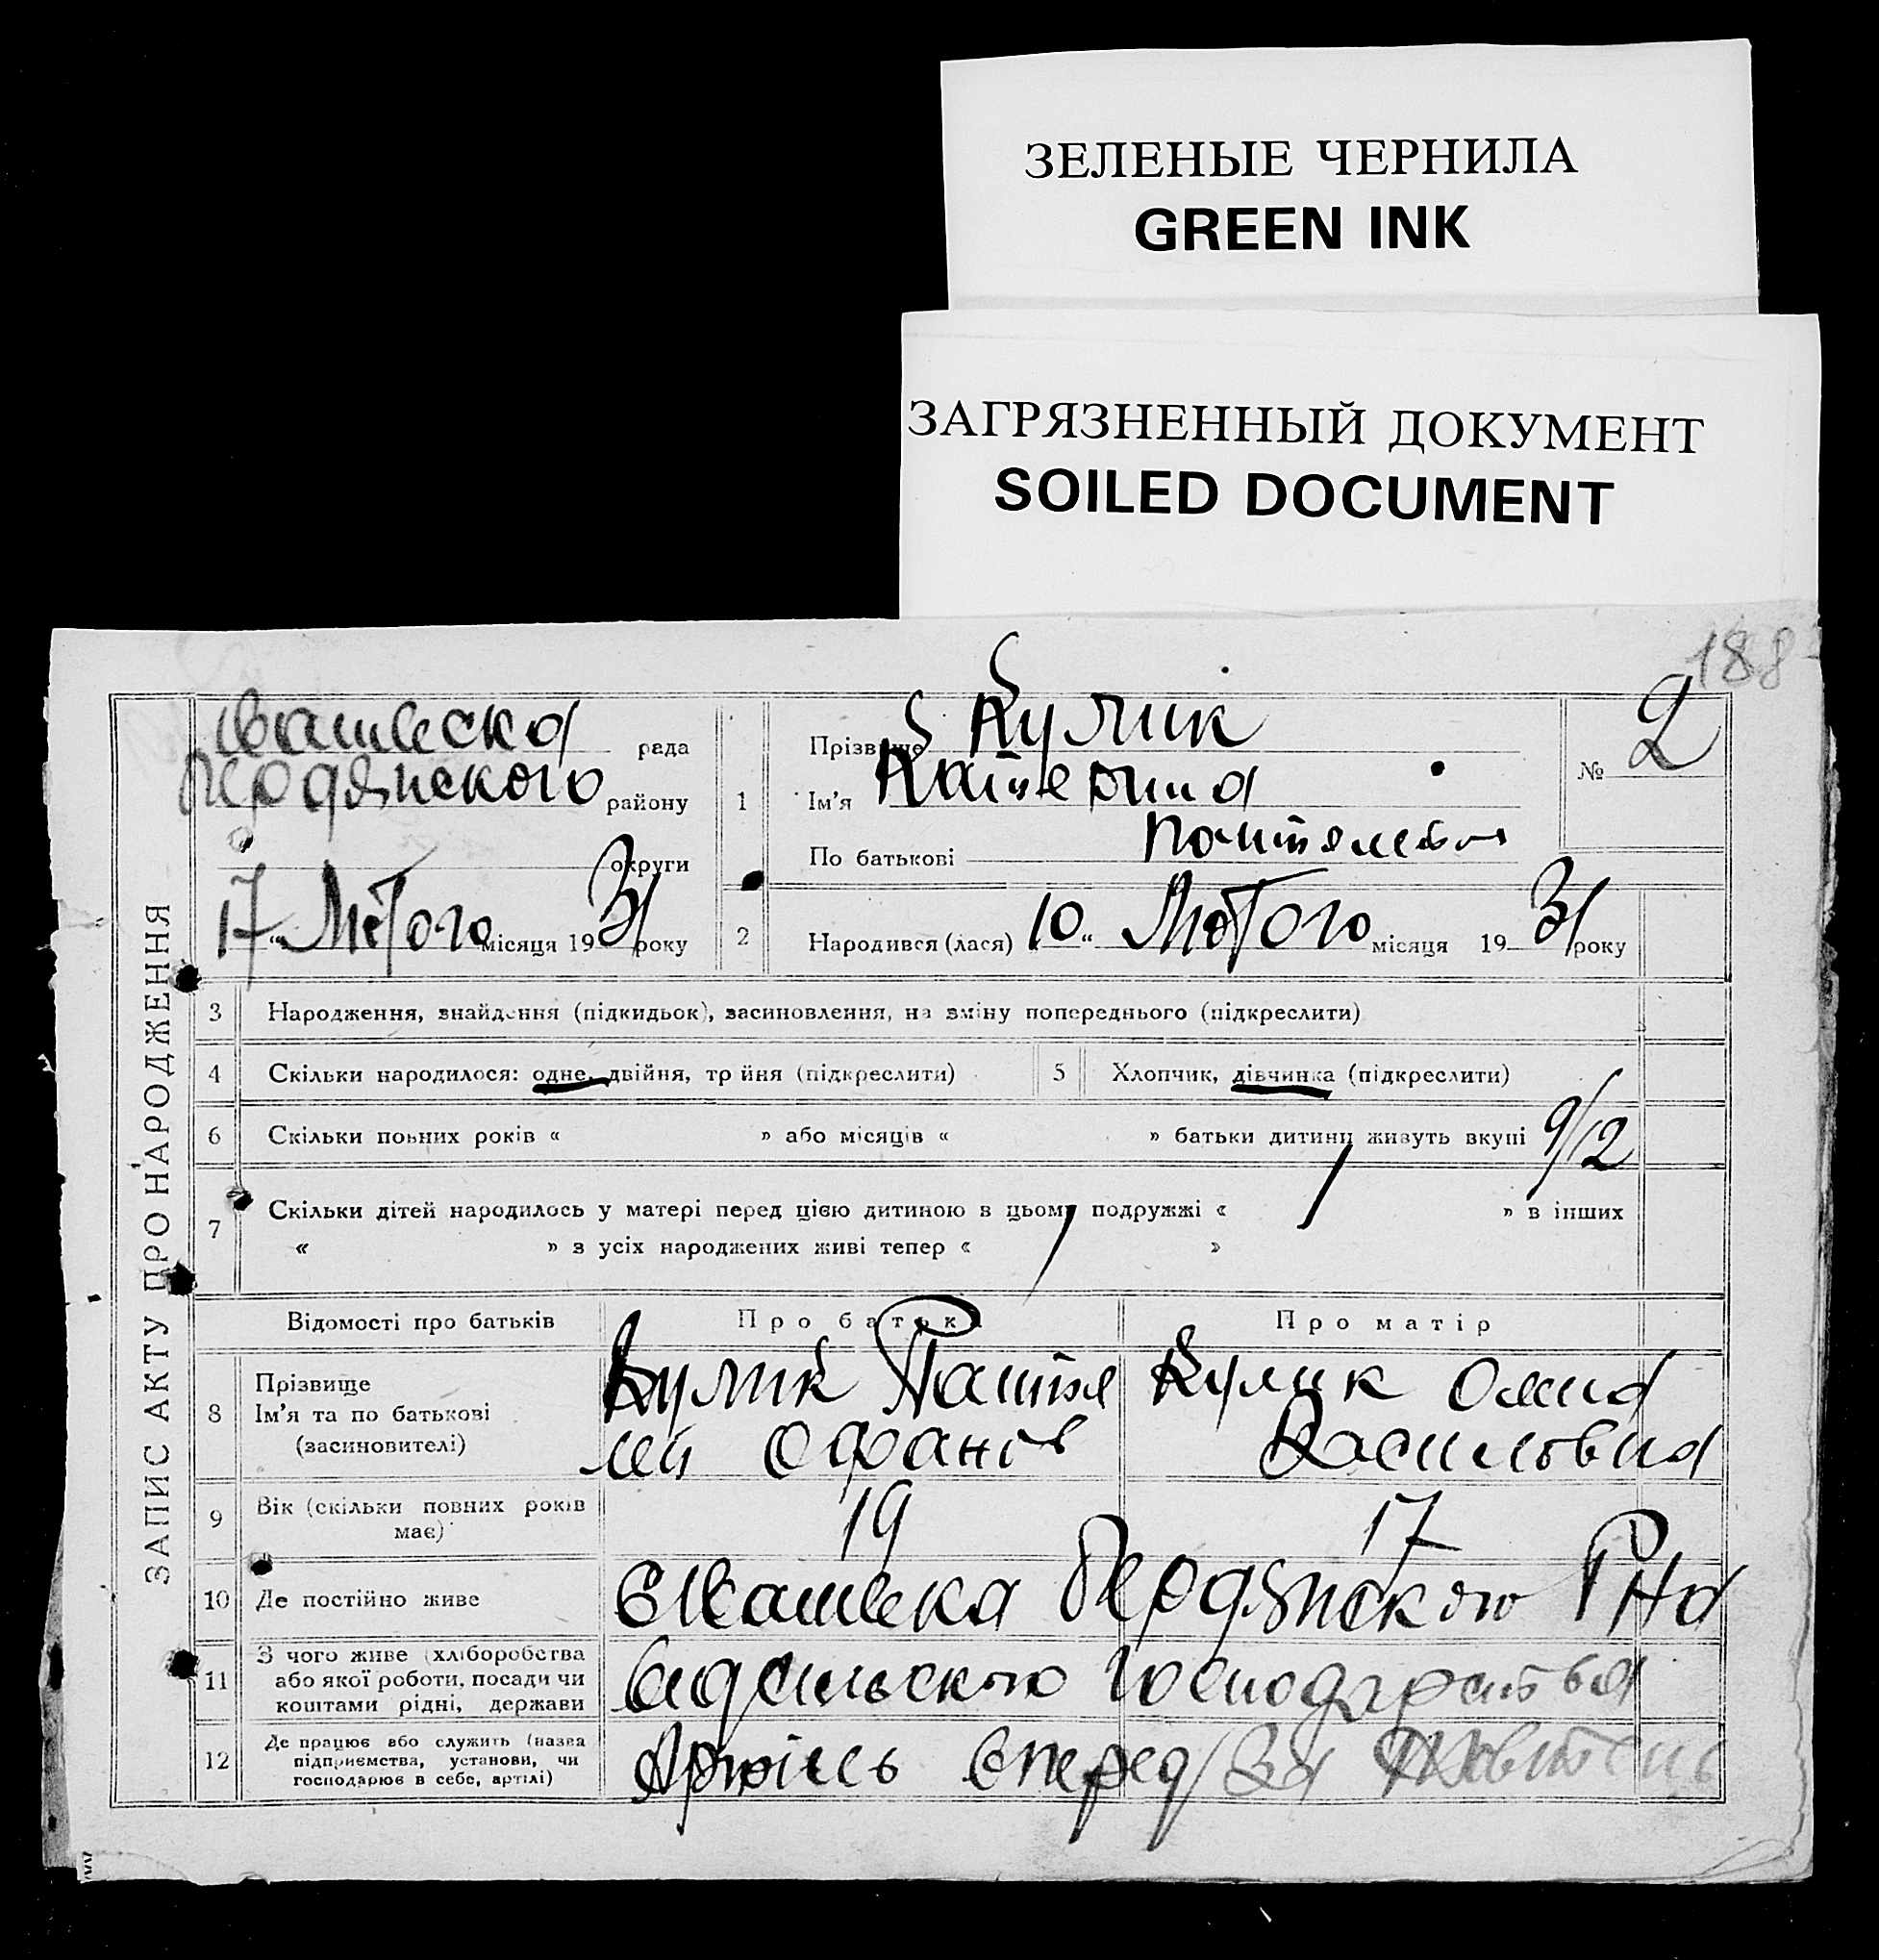 ЗЕЛЕНЫЕ ЧЕРНИЛА
GREEN INK
ЗАГРЯЗНЕННЫЙ ДОКУМЕНТ
SOILED DOCUMENT
188
ЗАПИС АКТУ ПРО НАРОДЖЕННЯ
рада
Бердянського району
округи
17 " Лютого місяця 1931 року
1
Прізвище Кулик
Ім'я Катерина
По батькові
№ 2
2
Народився (лася) 10 " Лютого місяця 1931 року
3 Народження, знайдення (підкидьок), засиновлення, на зміну попереднього (підкреслити)
4 Скільки народилося: одне, двійня, тройня (підкреслити)
5 Хлопчик, дівчинка (підкреслити)
6 Скільки повних років « » або місяців « » батьки дитини живуть вкупі 9/12
7 Скільки дітей народилось у матері перед цією дитиною в цьому подружжі « / » в інших
« » з усіх народжених живі тепер « / »
Відомості про батьків Про батька Про матір
8 Прізвище
Ім'я та по батькові
(засиновителі)
Кулик Пантелей
Кулик
Василовна
9 Вік (скільки повних років
має)
19 17
10 Де постійно живе Бердянского Р на
11 З чого живе (хліборобства
або якої роботи, посади чи
коштами рідні, держави
господарства
12 Де працює або служить (назва
підприємства, установи, чи
господарює в себе, артілі)
Артіль Вперед За